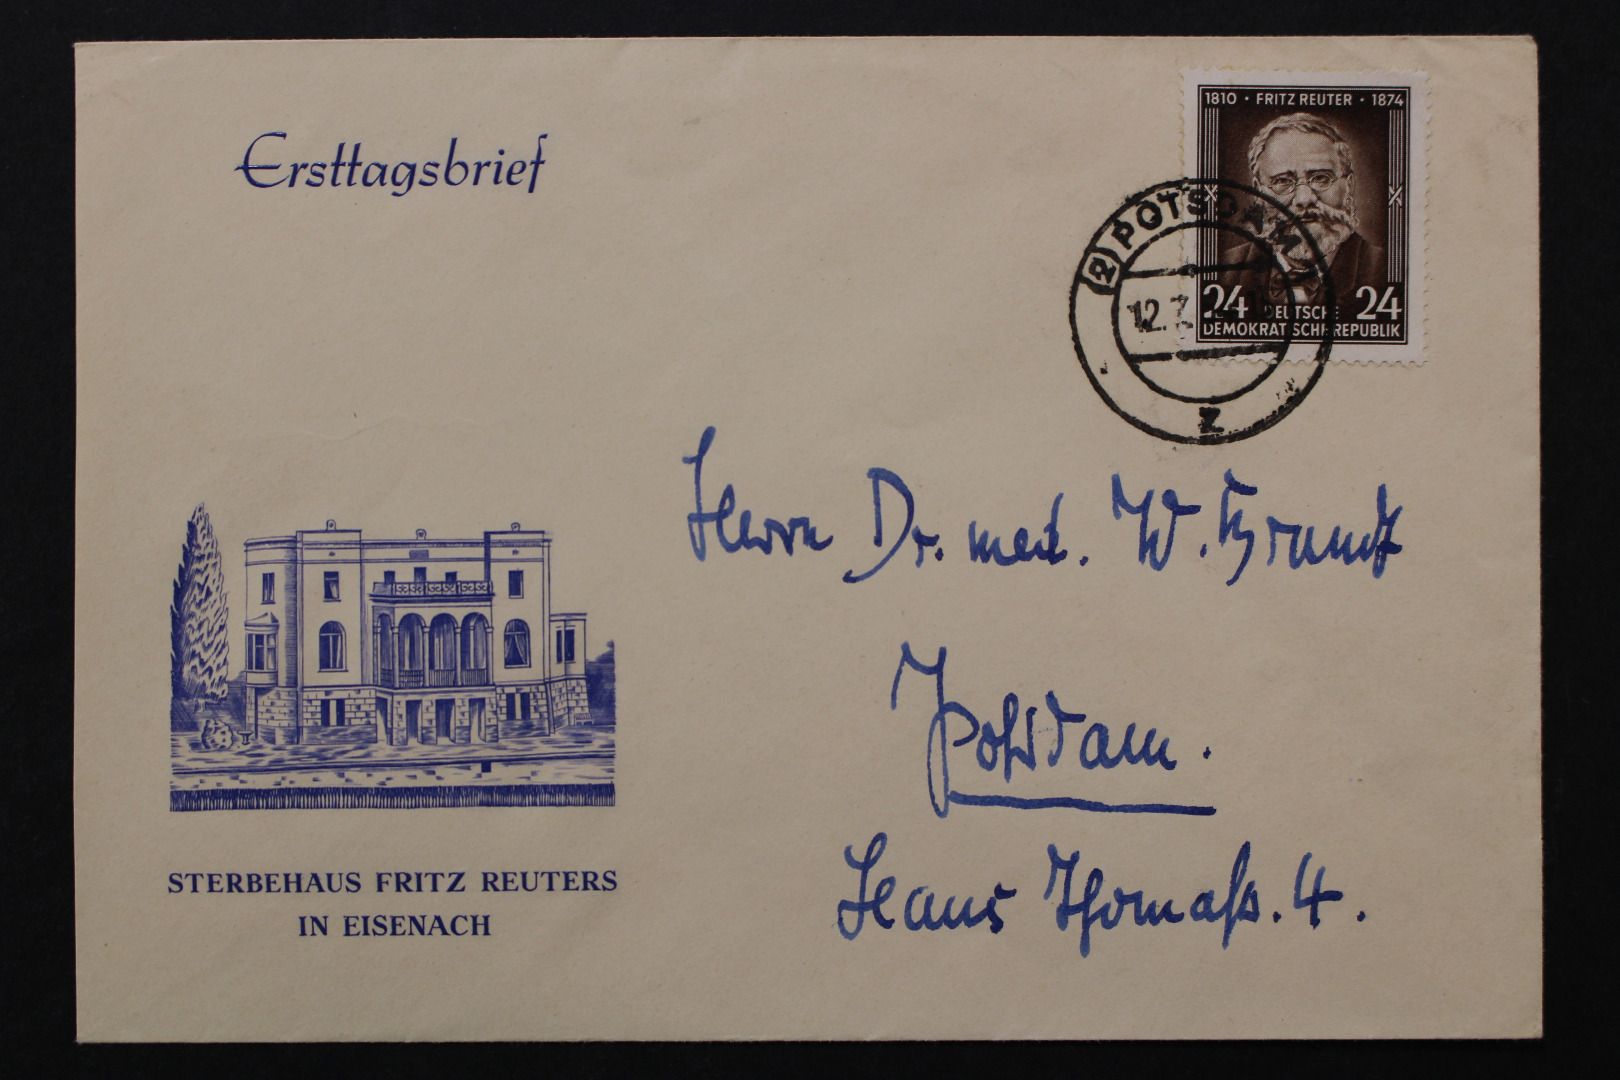 Ersttagsbrief
1810 · FRITZ REUTER · 1874
24 DEUTSCHE 24
DEMOKRATISCHE REPUBLIK
(2) POTSDAM
12.7.
z
Herrn Dr. med. W.
Potsdam.
Hans Thomaß. 4.
STERBEHAUS FRITZ REUTERS
IN EISENACH